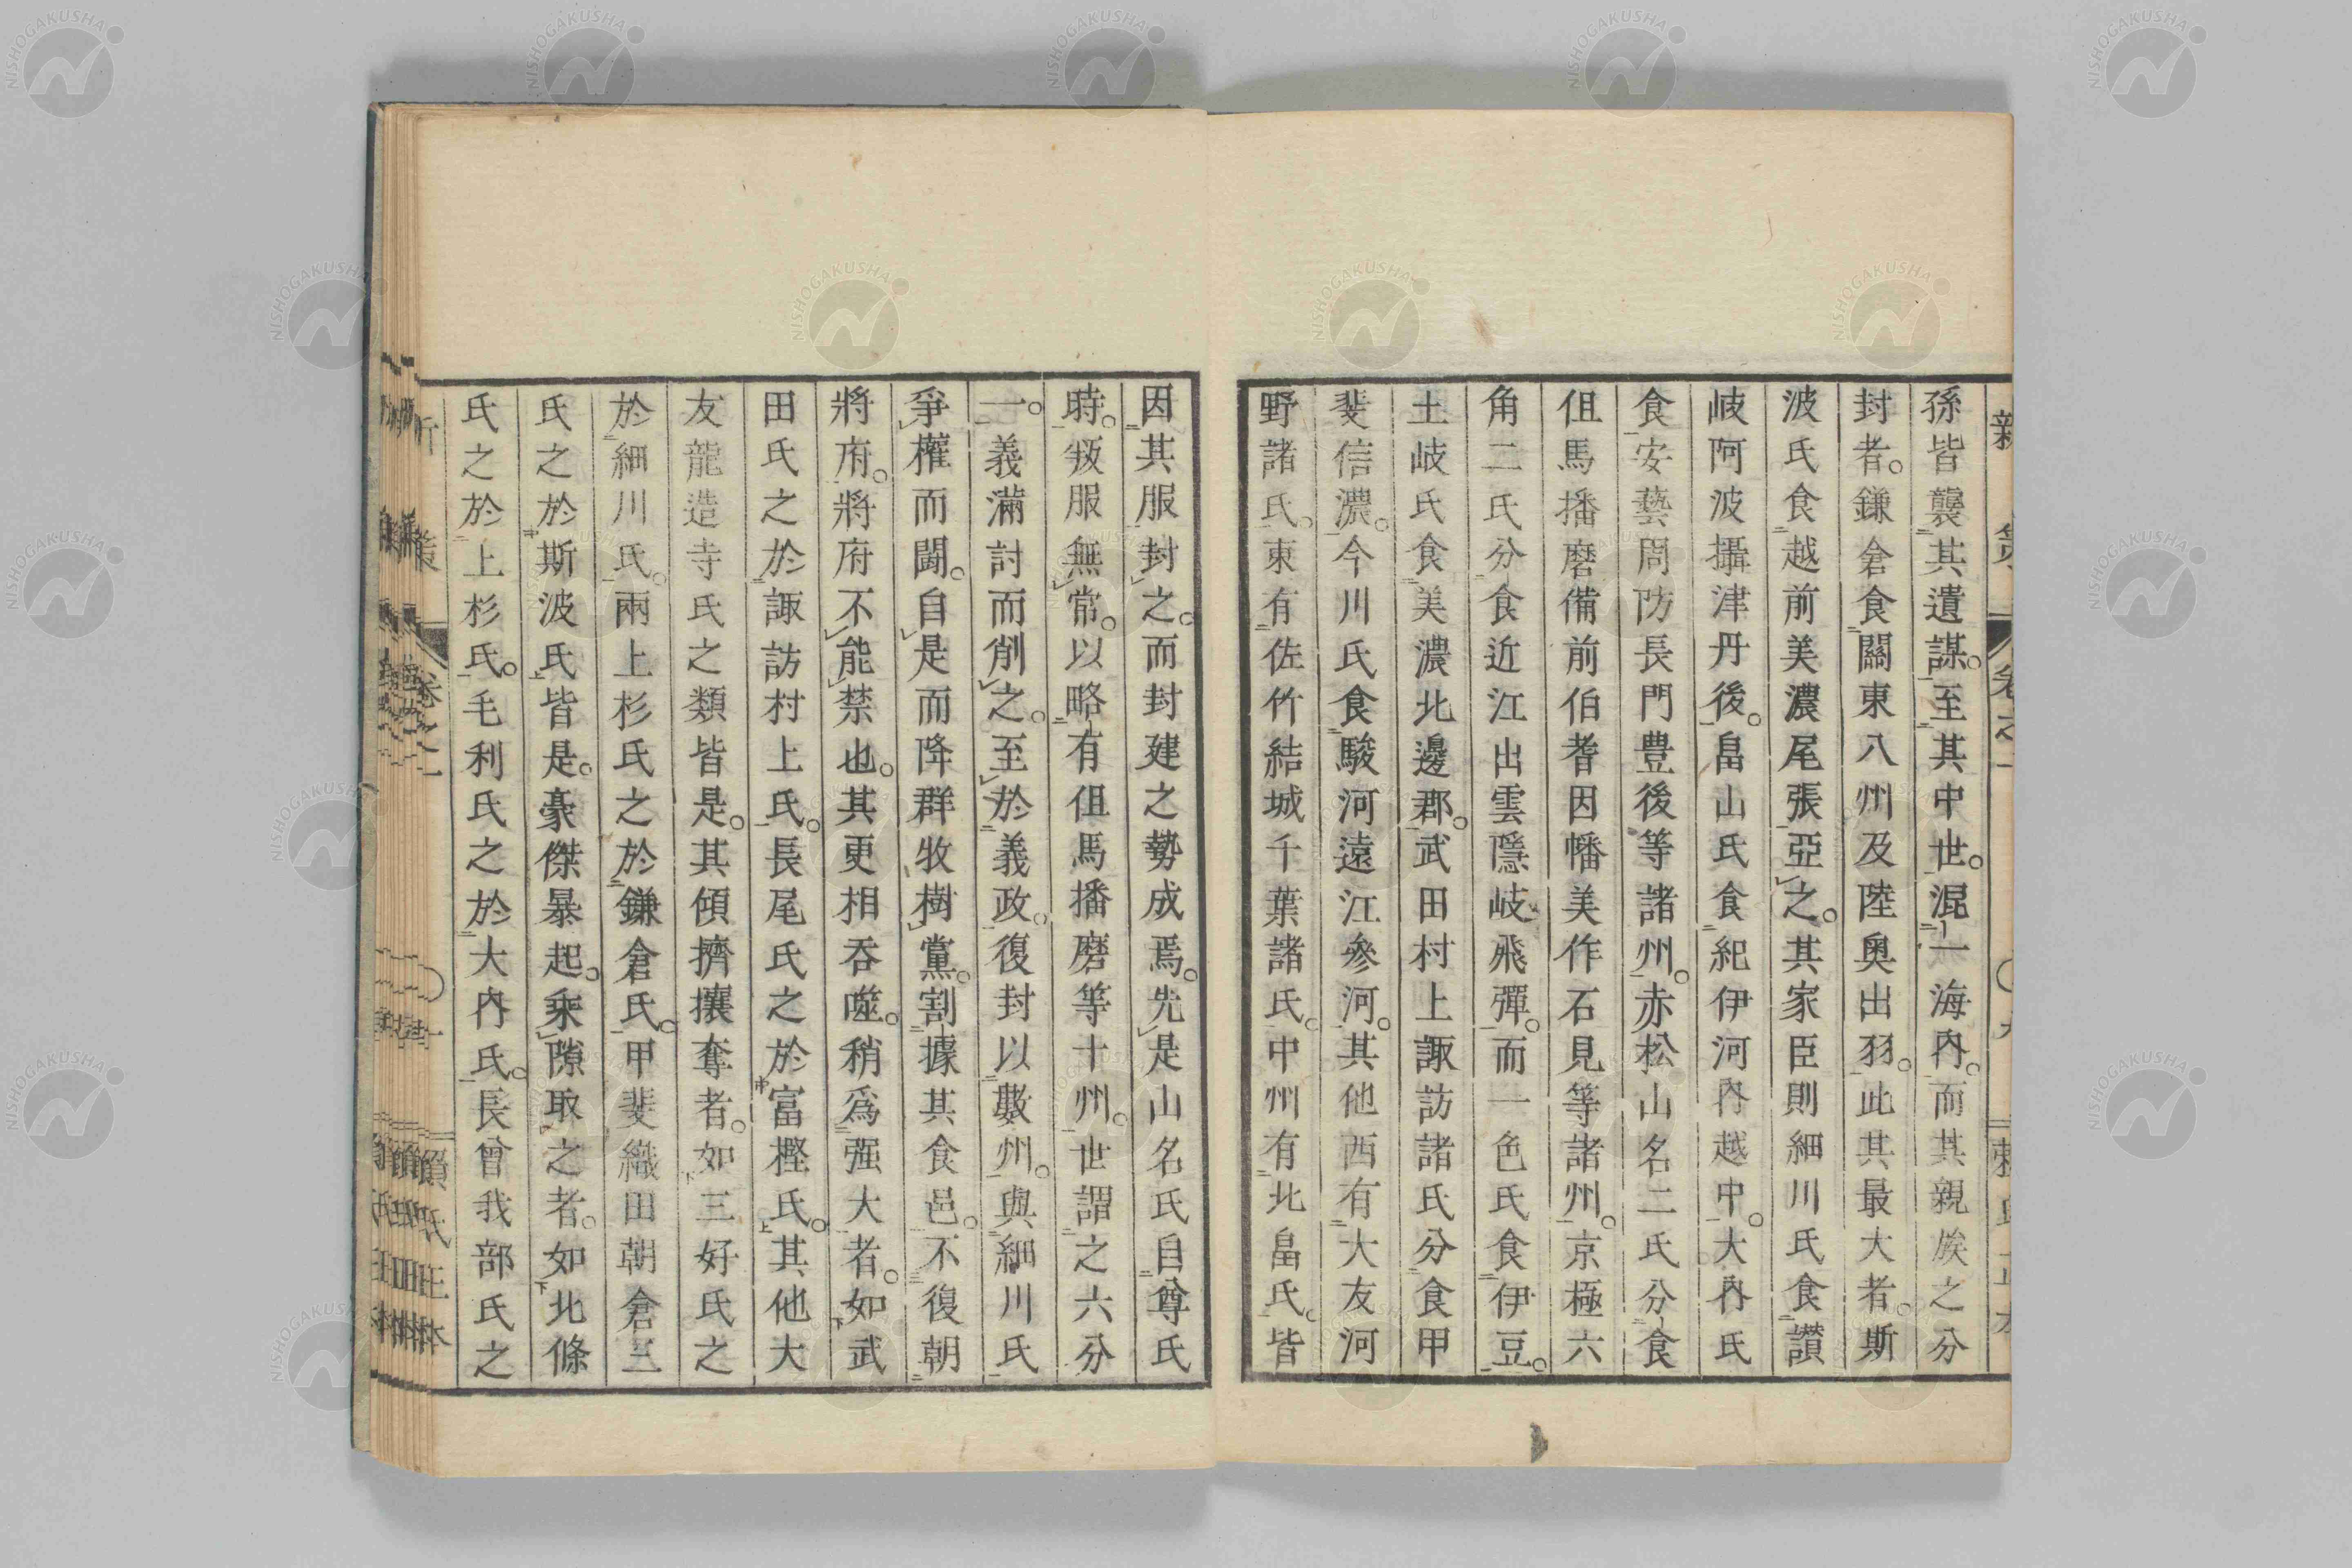 孫皆襲其遺謀。至其中世。混一海內。而其親族之分
封者。鎌倉食關東八州及陸奧出羽。此其最大者。斯
波氏食越前美濃尾張亞之。其家臣則細川氏食讃
岐阿波攝津丹後。畠山氏食紀伊河內越中。大內氏
食安藝周防長門豊後等諸州。赤松山名二氏分食
但馬播磨備前伯耆因幡美作石見等諸州。京極六
角二氏分食近江出雲隱岐飛彈。而一色氏食伊豆。
土岐氏食美濃北邊郡。武田村上諏訪諸氏分食甲
斐信濃。今川氏食駿河遠江參河。其他西有大友河
野諸氏。東有佐竹結城千葉諸氏。中州有北畠氏。皆
因其服封之。而封建之勢成焉。先是山名氏自尊氏
時。叛服無常。以略有但馬播磨等十州。世謂之六分
一。義滿討而削之。至於義政。復封以數州。與細川氏
爭權而鬪。自是而降群牧樹黨。割據其食邑。不復朝
將府。將府不能禁也。其更相吞噬。稍爲强大者。如武
田氏之於諏訪村上氏。長尾氏之於富樫氏。其他大
友龍造寺氏之類皆是。其傾擠攘奪者。如三好氏之
於細川氏。兩上杉氏之於鎌倉氏。甲斐織田朝倉三
氏之於斯波氏皆是。豪傑暴起。乘隙取之者。如北條
氏之於上杉氏。毛利氏之於大內氏。長曾我部氏之
卷之一
NISHOGAKUSHA